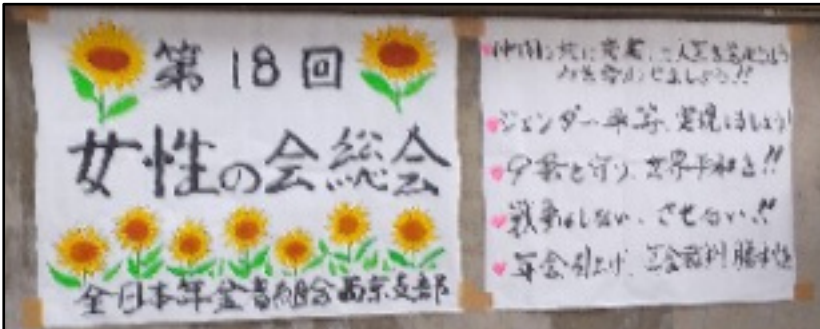 第18回
女性の会総会
全日本年金者組合西京支部
仲間と共に
力を合わせましょう!!
ジェンダー平等、実現しましょう!
9条を守り、世界平和を!!
戦争はしない、させない!!
年金引上げ、年金裁判勝利を